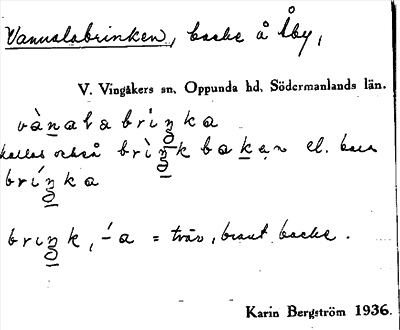 Vannalabrinken, backe å Åby,
V. Vingåkers sn, Oppunda hd, Södermanlands län.
vànalabriŋka
kallas också brìŋkbakẹn el. bara
bríŋka
briŋk, -́a = tvär, brant backe.
Karin Bergström 1936.